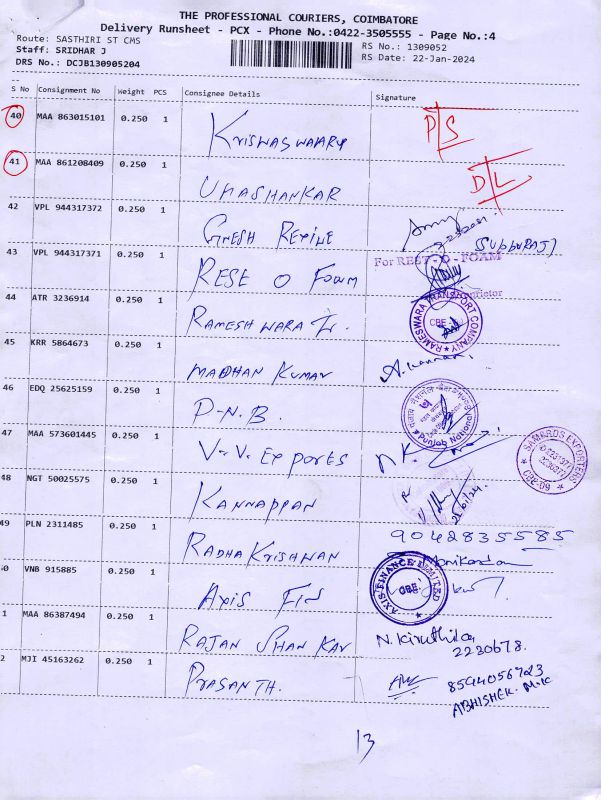 THE PROFESSIONAL COURIERS, COIMBATORE
Delivery Runsheet - PCX - Phone No.:0422-3505555 - Page No.:4
Route: SASTHIRI ST CMS
RS No.: 1309052
Staff: SRIDHAR J
RS Date: 22-Jan-2024
DRS No.: DCJB130905204
S No Consignment No Weight PCS Consignee Details Signature
40 MAA 863015101 0.250 1 KRISWASWAARY P S
41 MAA 861208409 0.250 1 UMASHANKAR D L
42 VPL 944317372 0.250 1 GNESH (SUBBURAJ)
43 VPL 944317371 0.250 1 RESE O FOAM For REST-O-FOAM
44 ATR 3236914 0.250 1 RAMESHWARA Tr. RAMESWARA TRANSPORT COMPANY CBE
45 KRR 5864673 0.250 1 MADHAN KUMAR A. Kannan
46 EDQ 25625159 0.250 1 P-N.B. Punjab National
47 MAA 573601445 0.250 1 V.V. EXPORTS SAMAROS EXPORTERS CBE-09
48 NGT 50025575 0.250 1 KANNAPPAN
49 PLN 2311485 0.250 1 RADHA KRISHNAN 9042835585
Manikandan
0 VNB 915885 0.250 1 AXIS FIN AXIS FINANCE LIMITED CBE.
1 MAA 86387494 0.250 1 RAJAN SHANKAR N. Kiruthika
2230678.
2 MJI 45163262 0.250 1 PRASANTH. 8594056723
ABHISHEK. M.K
13